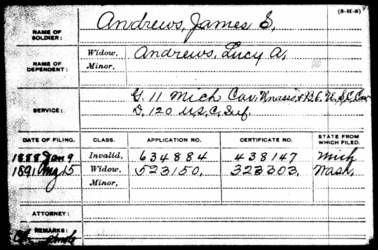 (3-11-5)
NAME OF SOLDIER: Andrews, James S,
NAME OF DEPENDENT: Widow, Andrews, Lucy A,
Minor,
SERVICE: G. 11 Mich Cav, Unassi'd & B.6. U.S,C,Cav
D, 120 U.S,C,Inf.
DATE OF FILING. CLASS. APPLICATION NO. CERTIFICATE NO. STATE FROM WHICH FILED.
1888 Jan 9 Invalid, 634884 438147 Mich
1891 Aug 15 Widow, 523150, 323303, Wash,
Minor,
ATTORNEY:
REMARKS: